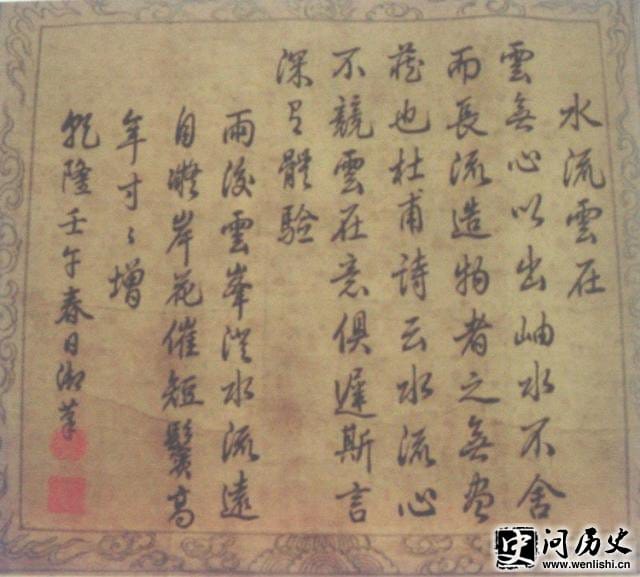 水流雲在
雲無心以出岫水不舍
而長流造物者之無盡
藏也杜甫詩云水流心
不競雲在意俱遲斯言
深有體驗
雨後雲峯澄水流遠
自凝岸花催短鬢高
年寸〻增
乾隆壬午春日御筆
问历史
www.wenlishi.cn